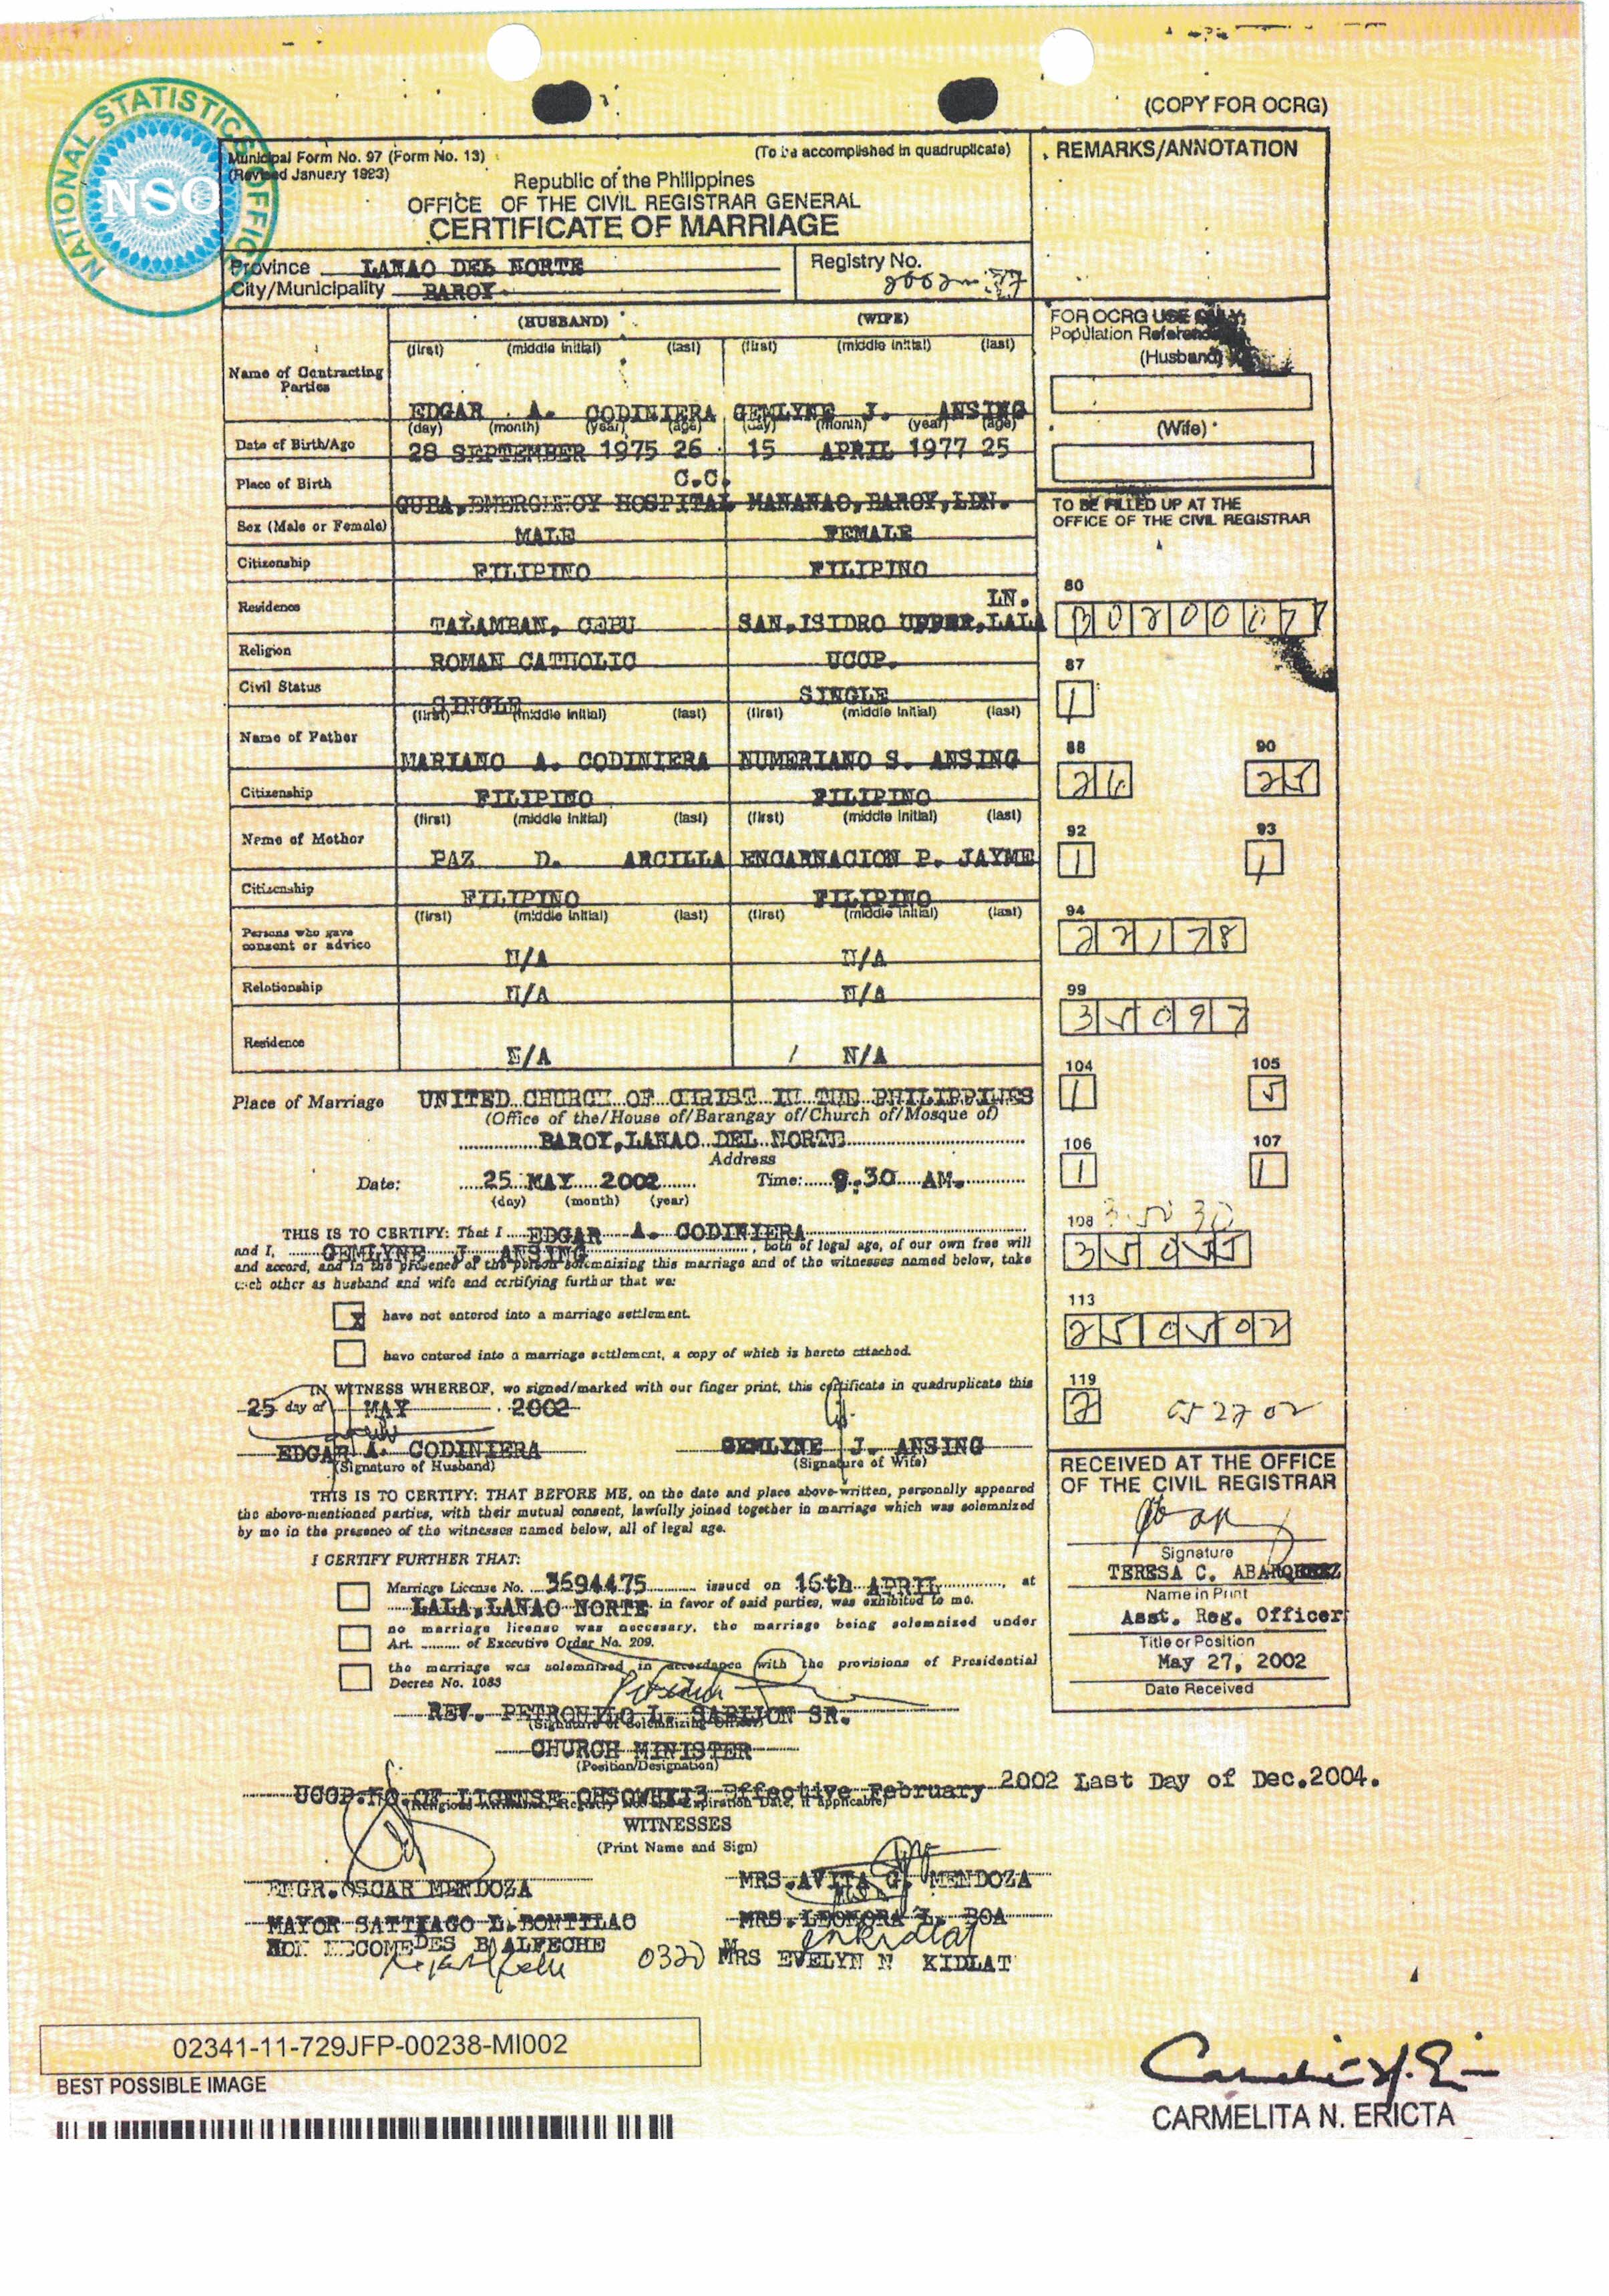 (COPY FOR OCRG)
NATIONAL STATISTICS OFFICE
NSO
Municipal Form No. 97 (Form No. 13)
(To be accomplished in quadruplicate)
(Revised January 1993)
Republic of the Philippines
OFFICE OF THE CIVIL REGISTRAR GENERAL
CERTIFICATE OF MARRIAGE
REMARKS/ANNOTATION
Province LANAO DEL NORTE
City/Municipality BAROY
Registry No.
(HUSBAND) (WIFE)
(first) (middle initial) (last) (first) (middle initial) (last)
Name of Contracting Parties
EDGAR A. CODINIERA GEMLYNE J. ANSING
(day) (month) (year) (age) (day) (month) (year) (age)
Date of Birth/Age 28 SEPTEMBER 1975 26 15 APRIL 1977 25
Place of Birth C.C.
GUBA, EMERGENCY HOSPITAL MANANAO, BAROY, LDN.
Sex (Male or Female) MALE FEMALE
Citizenship FILIPINO FILIPINO
LN.
Residence TALAMBAN, CEBU SAN, ISIDRO UPPER, LALA
Religion ROMAN CATHOLIC UCCP.
Civil Status SINGLE SINGLE
(first) (middle initial) (last) (first) (middle initial) (last)
Name of Father MARIANO A. CODINIERA NUMERIANO S. ANSING
Citizenship FILIPINO FILIPINO
(first) (middle initial) (last) (first) (middle initial) (last)
Name of Mother PAZ D. ARCILLA ENCARNACION P. JAYME
Citizenship FILIPINO FILIPINO
(first) (middle initial) (last) (first) (middle initial) (last)
Persons who gave consent or advice N/A N/A
Relationship N/A N/A
Residence N/A N/A
Place of Marriage UNITED CHURCH OF CHRIST IN THE PHILIPPINES
(Office of the/House of/Barangay of/Church of/Mosque of)
BAROY, LANAO DEL NORTE
Address
Date: 25 MAY 2002 Time: 9:30 AM.
(day) (month) (year)
THIS IS TO CERTIFY: That I EDGAR A. CODINIERA
and I, GEMLYNE J. ANSING, both of legal age, of our own free will
and accord, and in the presence of the person solemnizing this marriage and of the witnesses named below, take
each other as husband and wife and certifying further that we:
X have not entered into a marriage settlement.
have entered into a marriage settlement, a copy of which is hereto attached.
IN WITNESS WHEREOF, we signed/marked with our finger print, this certificate in quadruplicate this
25 day of MAY 2002
EDGAR A. CODINIERA GEMLYNE J. ANSING
(Signature of Husband) (Signature of Wife)
THIS IS TO CERTIFY: THAT BEFORE ME, on the date and place above-written, personally appeared
the above-mentioned parties, with their mutual consent, lawfully joined together in marriage which was solemnized
by me in the presence of the witnesses named below, all of legal age.
I CERTIFY FURTHER THAT:
Marriage License No. 3694475 issued on 16th APRIL, at
LALA, LANAO NORTE in favor of said parties, was exhibited to me.
no marriage license was necessary, the marriage being solemnized under
Art. ........ of Executive Order No. 209.
the marriage was solemnized in accordance with the provisions of Presidential
Decree No. 1083
REV. PETRONILO L. SABIJON SR.
(Signature of Solemnizing Officer)
CHURCH MINISTER
(Position/Designation)
Effective February 2002 Last Day of Dec.2004.
WITNESSES
(Print Name and Sign)
ENGR. OSCAR MENDOZA MRS. AVITA G. MENDOZA
MAYOR SATTIAGO L. BONTILAO MRS. LEONORA L. BOA
BALFECHE MRS EVELYN N KIDLAT
0320
FOR OCRG USE ONLY:
Population Reference
(Husband)
(Wife)
TO BE FILLED UP AT THE
OFFICE OF THE CIVIL REGISTRAR
80
87
1
88 90
26 25
92 93
1 1
94
22178
99
35097
104 105
1 5
106 107
1 1
108
113
250502
119
2 052702
RECEIVED AT THE OFFICE
OF THE CIVIL REGISTRAR
Signature
TERESA C. ABARQUEZ
Name in Print
Asst. Reg. Officer
Title or Position
May 27, 2002
Date Received
02341-11-729JFP-00238-MI002
BEST POSSIBLE IMAGE
CARMELITA N. ERICTA